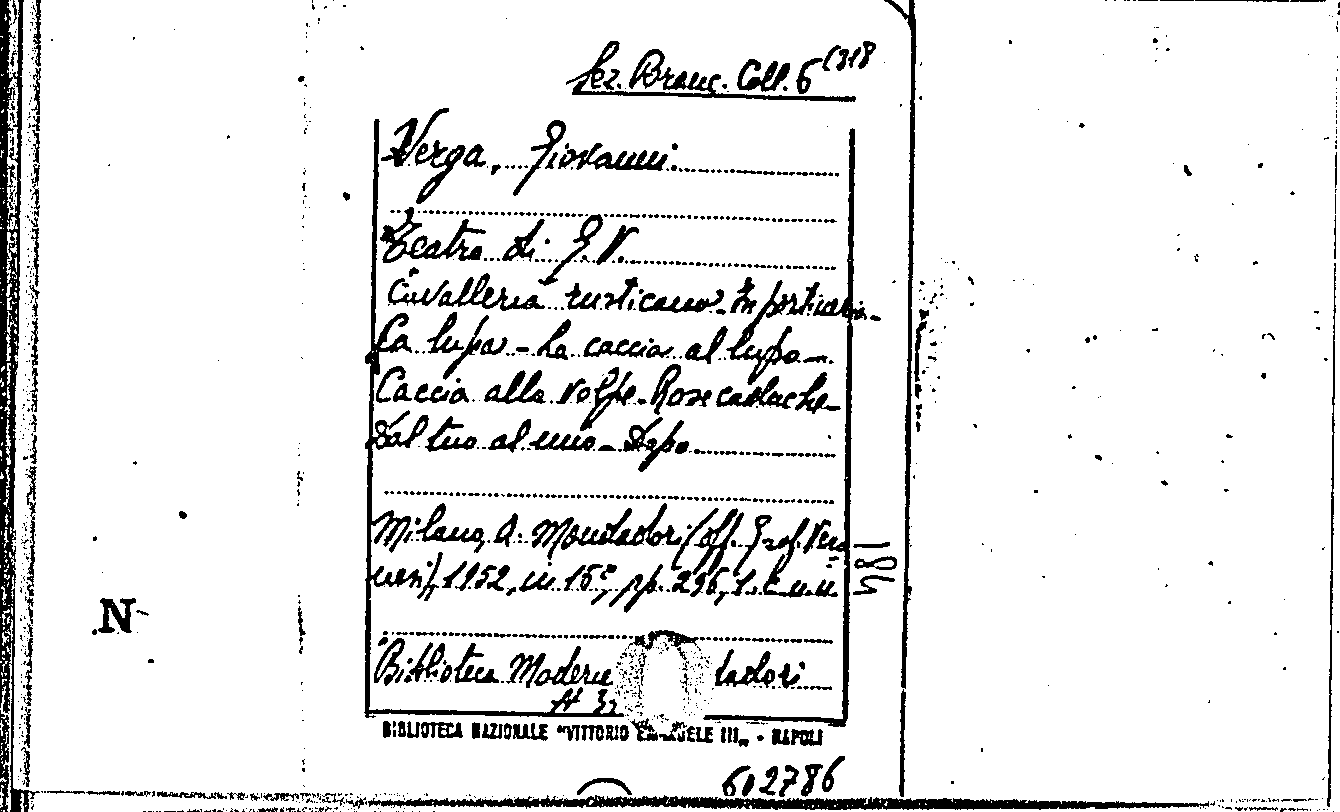 Sez. Branc. Coll. 6 (318
Verga, Giovanni.
Teatro di G. V.
"Cavalleria rusticana". In portineria.-
La lupa - La caccia al lupo -
Caccia alla volpe - Rose caduche -
Dal tuo al mio - Dopo.
Milano, A. Mondadori (off. Graf. Vero
nesi), 1952, in 16º, pp. 296, 1. c. n. n.
Biblioteca Moderna dadori
Nº
BIBLIOTECA NAZIONALE "VITTORIO EMANUELE III„ - NAPOLI
602786
N